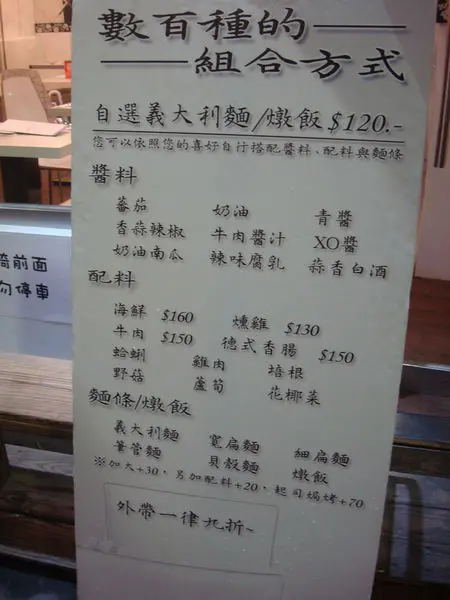 數百種的
組合方式
自選義大利麵/燉飯 $120.-
您可以依照您的喜好自行搭配醬料、配料與麵條
醬料
蕃茄 奶油 青醬
香蒜辣椒 牛肉醬汁 XO醬
奶油南瓜 辣味腐乳 蒜香白酒
配料
海鮮 $160 燻雞 $130
牛肉 $150 德式香腸 $150
蛤蜊 雞肉 培根
野菇 蘆筍 花椰菜
麵條/燉飯
義大利麵 寬扁麵 細扁麵
筆管麵 貝殼麵 燉飯
※加大+30，另加配料+20，起司焗烤+70
外帶一律九折~
前面
停車